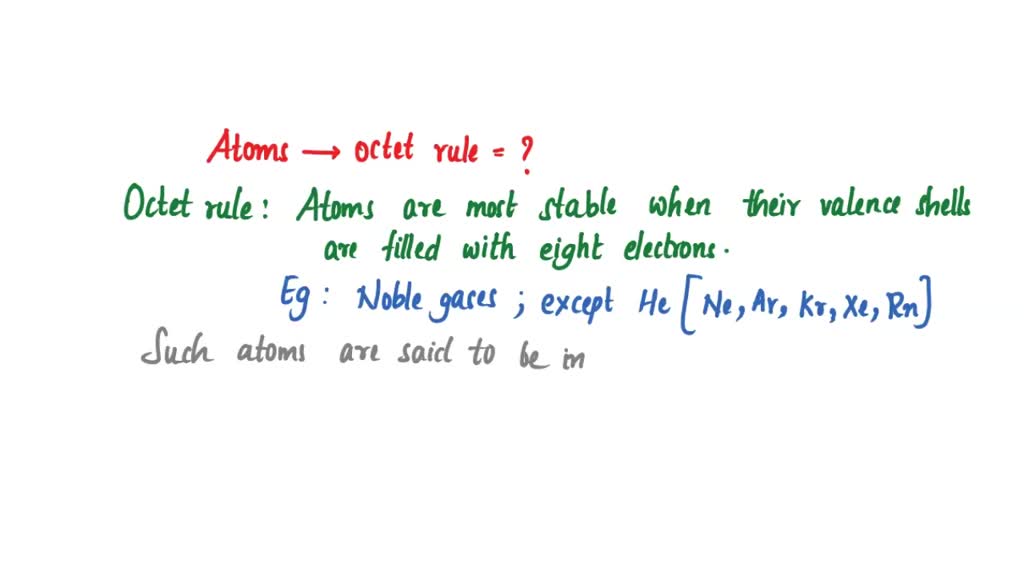 Atoms → octet rule = ?
Octet rule: Atoms are most stable when their valence shells
are filled with eight electrons.
Eg : Noble gases ; except He [Ne, Ar, Kr, Xe, Rn]
Such atoms are said to be in